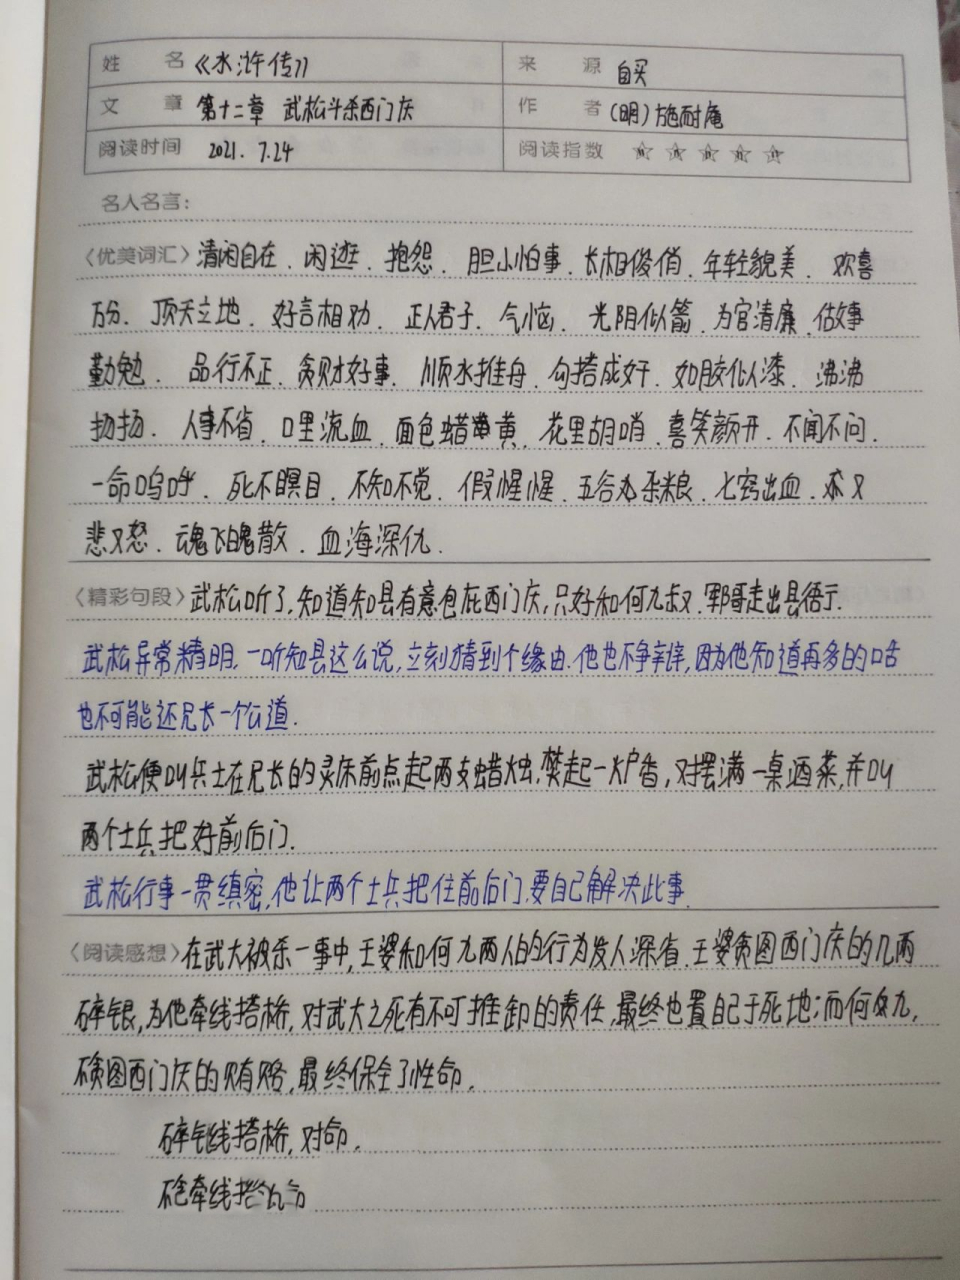 姓 名 《水浒传》 来 源 自买
文 章 第十二章 武松斗杀西门庆 作 者 (明)施耐庵
阅读时间 2021. 7.24 阅读指数 ☆ ☆ ☆ ☆ ☆
名人名言:
〈优美词汇〉清闲自在、闲逛、抱怨、胆小怕事、长相俊俏、年轻貌美、欢喜
万分、顶天立地、好言相劝、正人君子、气恼、光阴似箭、为官清廉、做事
勤勉、品行不正、贪财好事、顺水推舟、勾搭成奸、如胶似漆、沸沸
扬扬、人事不省、口里流血、面色蜡黄、花里胡哨、喜笑颜开、不闻不问、
一命呜呼、死不瞑目、不知不觉、假惺惺、五谷杂粮、七窍出血、又
悲又怒、魂飞魄散、血海深仇.
〈精彩句段〉武松听了,知道知县有意包庇西门庆,只好和何九叔、郓哥走出县衙.
武松异常精明,一听知县这么说,立刻猜到个缘由.他也不争辩,因为他知道再多的话
也不可能还兄长一个公道.
武松便叫兵士在兄长的灵床前点起两支蜡烛,焚起一炉香,又摆满一桌酒菜,并叫
两个士兵把好前后门.
武松行事一贯缜密,他让两个士兵把住前后门,要自己解决此事.
〈阅读感想〉在武大被杀一事中,王婆和何九两人的行为发人深省.王婆贪图西门庆的几两
碎银,为他牵线搭桥,对武大之死有不可推卸的责任,最终也置自己于死地;而何九,
不贪图西门庆的贿赂,最终保全了性命.
碎线搭桥,对命.
牵线搭